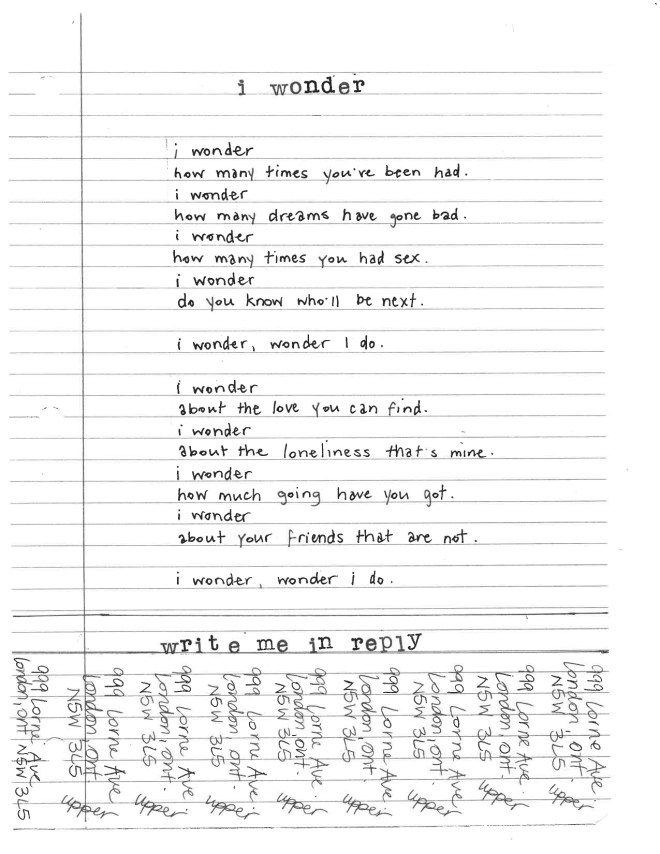 i wonder
i wonder
how many times you've been had.
i wonder
how many dreams have gone bad.
i wonder
how many times you had sex.
i wonder
do you know who'll be next.
i wonder, wonder I do.
i wonder
about the love you can find.
i wonder
about the loneliness that's mine.
i wonder
how much going have you got.
i wonder
about your friends that are not.
i wonder, wonder i do.
write me in reply
999 Lorne Ave.
London, Ont N5W 3L5
999 Lorne Ave
London, Ont
N5W 3L5 upper
999 Lorne Ave
London, Ont.
N5W 3L5 upper
999 Lorne Ave.
London, Ont.
N5W 3L5 upper
999 Lorne Ave.
London, Ont.
N5W 3L5 upper
999 Lorne Ave.
London, Ont.
N5W 3L5 upper
999 Lorne Ave.
London, Ont.
N5W 3L5 upper
999 Lorne Ave.
London, Ont.
N5W 3L5 upper
999 Lorne Ave.
London, Ont.
N5W 3L5 upper